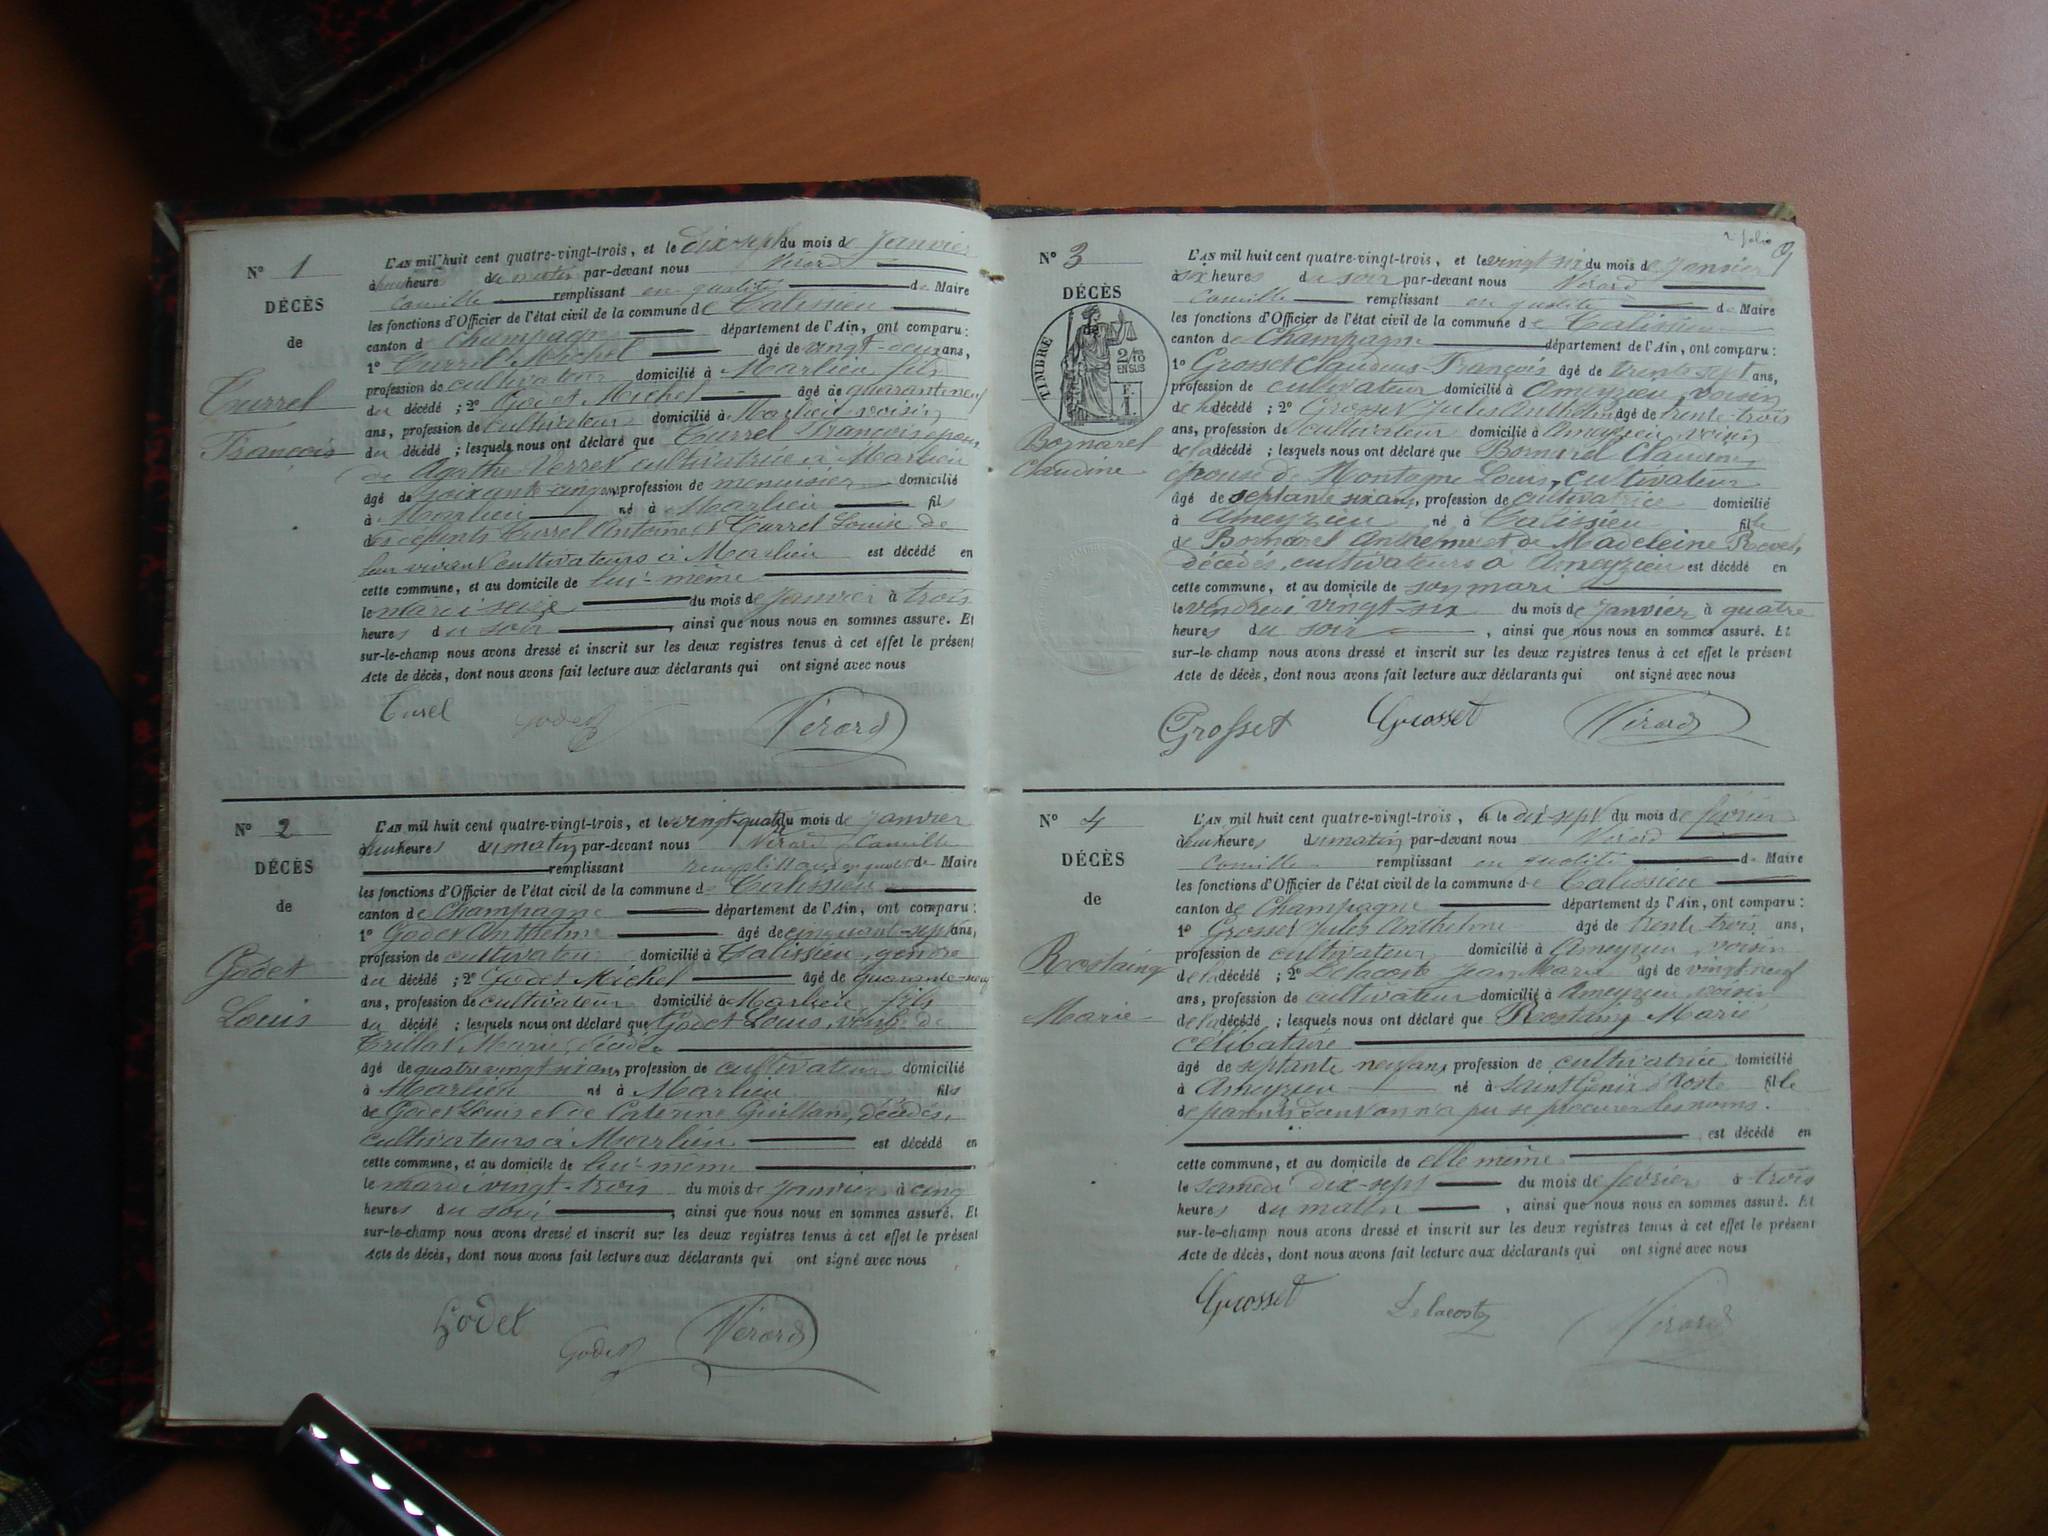 N° 1
DÉCÈS
de
Turrel
François
L'AN mil huit cent quatre-vingt-trois, et le dix-sept du mois de Janvier
à huit heures du matin par-devant nous Vérard
Camille remplissant en qualité de Maire
les fonctions d'Officier de l'état civil de la commune de Talissieu
canton de Champagne département de l'Ain, ont comparu :
1° Turrel Michel âgé de vingt-deux ans,
profession de cultivateur domicilié à Marlieu fils
du décédé ; 2° Godet Michel âgé de quarante neuf
ans, profession de cultivateur domicilié à Marlieu voisin
du décédé ; lesquels nous ont déclaré que Turrel François époux
de Agathe Verret cultivatrice à Marlieu
âgé de soixante-cinq ans, profession de menuisier domicilié
à Marlieu né à Marlieu fils
des défunts Turrel Antoine et Turrel Louise de
leur vivant cultivateurs à Marlieu est décédé en
cette commune, et au domicile de lui-même
le mardi seize du mois de janvier à trois
heures du soir, ainsi que nous nous en sommes assuré. Et
sur-le-champ nous avons dressé et inscrit sur les deux registres tenus à cet effet le présent
Acte de décès, dont nous avons fait lecture aux déclarants qui ont signé avec nous
Turel Godet Vérard
N° 2
DÉCÈS
de
Godet
Louis
L'AN mil huit cent quatre-vingt-trois, et le vingt-quatre du mois de Janvier
à huit heures du matin par-devant nous Vérard Camille
remplissant remplissant en qualité de Maire
les fonctions d'Officier de l'état civil de la commune de Talissieu
canton de Champagne département de l'Ain, ont comparu :
1° Godet Anthelme âgé de cinquante-sept ans,
profession de cultivateur domicilié à Talissieu, gendre
du décédé ; 2° Godet Michel âgé de quarante-neuf
ans, profession de cultivateur domicilié à Marlieu, fils
du décédé ; lesquels nous ont déclaré que Godet Louis, veuf de
Trillat Marie, décédée
âgé de quatre vingt six ans profession de cultivateur domicilié
à Marlieu né à Marlieu fils
de Godet Louis et de Caterine Guilland, décédés,
cultivateurs à Marlieu est décédé en
cette commune, et au domicile de lui-même
le mardi vingt-trois du mois de janvier à cinq
heures du soir, ainsi que nous nous en sommes assuré. Et
sur-le-champ nous avons dressé et inscrit sur les deux registres tenus à cet effet le présent
Acte de décès, dont nous avons fait lecture aux déclarants qui ont signé avec nous
Godet Godet Vérard
folio
N° 3
DÉCÈS
de
TIMBRE
2/10
EN SUS
F.
1.
Bornarel
Claudine
L'AN mil huit cent quatre-vingt-trois, et le vingt six du mois de Janvier
à six heures du soir par-devant nous Vérard
Camille remplissant en qualité de Maire
les fonctions d'Officier de l'état civil de la commune de Talissieu
canton de Champagne département de l'Ain, ont comparu :
1° Grosset Claudius-François âgé de trente sept ans,
profession de cultivateur domicilié à Ameyzieu, voisin
de la décédé ; 2° Grosset Jules Anthelme âgé de trente-trois
ans, profession de cultivateur domicilié à Ameyzieu voisin
de la décédé ; lesquels nous ont déclaré que Bornarel Claudine
épouse de Montagne Louis, cultivateur
âgé de septante six ans, profession de cultivatrice domicilié
à Ameyzieu né à Talissieu fille
de Bornarel Anthelme et de Madeleine Revet,
décédés, cultivateurs à Ameyzieu est décédé en
cette commune, et au domicile de son mari
le vendredi vingt-six du mois de janvier à quatre
heures du soir, ainsi que nous nous en sommes assuré. Et
sur-le-champ nous avons dressé et inscrit sur les deux registres tenus à cet effet le présent
Acte de décès, dont nous avons fait lecture aux déclarants qui ont signé avec nous
Grosset Grosset Vérard
N° 4
DÉCÈS
de
Rostaing
Marie
L'AN mil huit cent quatre-vingt-trois, et le dix-sept du mois de février
à huit heures du matin par-devant nous Vérard
Camille remplissant en qualité de Maire
les fonctions d'Officier de l'état civil de la commune de Talissieu
canton de Champagne département de l'Ain, ont comparu :
1° Grosset Jules Anthelme âgé de trente trois ans,
profession de cultivateur domicilié à Ameyzieu, voisin
de la décédé ; 2° Delacoste Jean Marie âgé de vingt neuf
ans, profession de cultivateur domicilié à Ameyzieu voisin
de la décédé ; lesquels nous ont déclaré que Rostaing Marie
célibataire
âgé de septante neuf ans profession de cultivatrice domicilié
à Ameyzieu né à Saint Genix d'Aoste fille
de parents dont on n'a pu se procurer les noms.
est décédé en
cette commune, et au domicile de elle même
le samedi dix-sept du mois de février à trois
heures du matin, ainsi que nous nous en sommes assuré. Et
sur-le-champ nous avons dressé et inscrit sur les deux registres tenus à cet effet le présent
Acte de décès, dont nous avons fait lecture aux déclarants qui ont signé avec nous
Grosset Delacoste Vérard